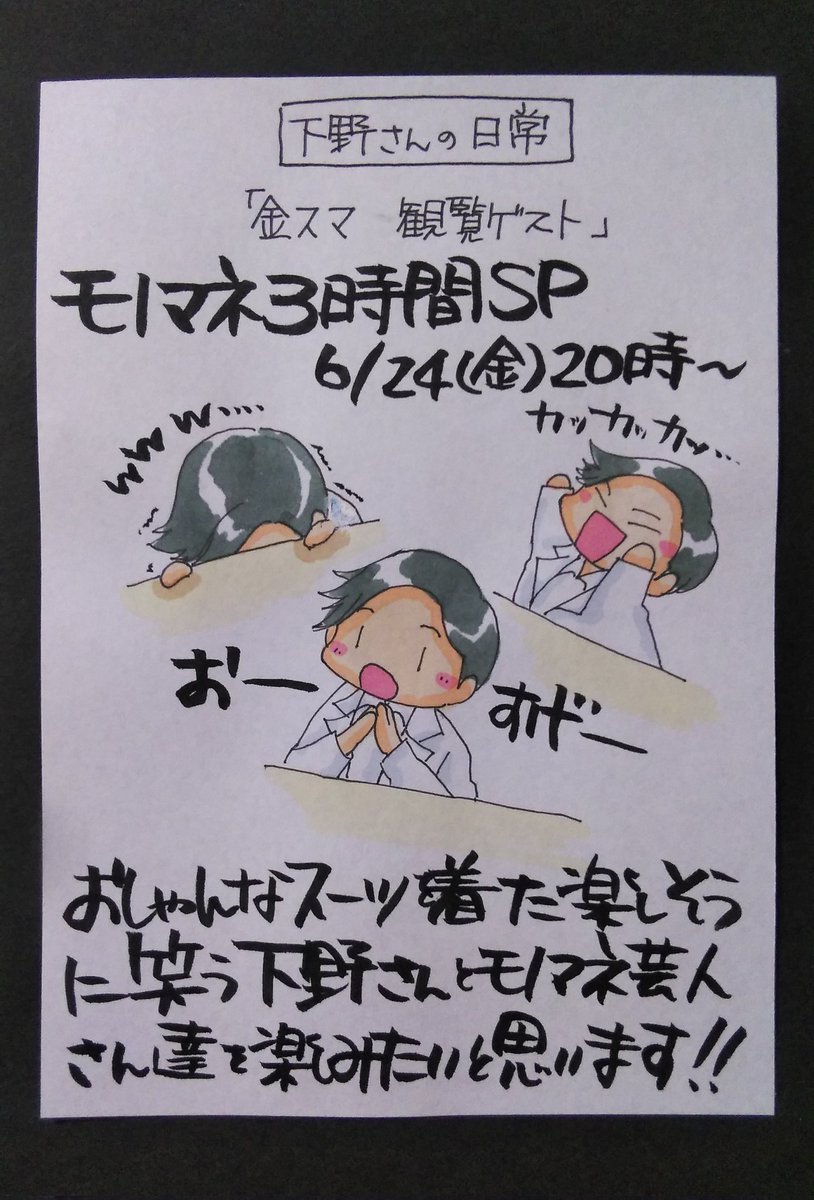 下野さんの日常
「金スマ 観覧ゲスト」
モノマネ3時間SP
6/24(金)20時～
www....
カッカッカッ...
おー
すげー
おしゃんなスーツ着た楽しそう
に笑う下野さんとモノマネ芸人
さん達を楽しみたいと思います!!